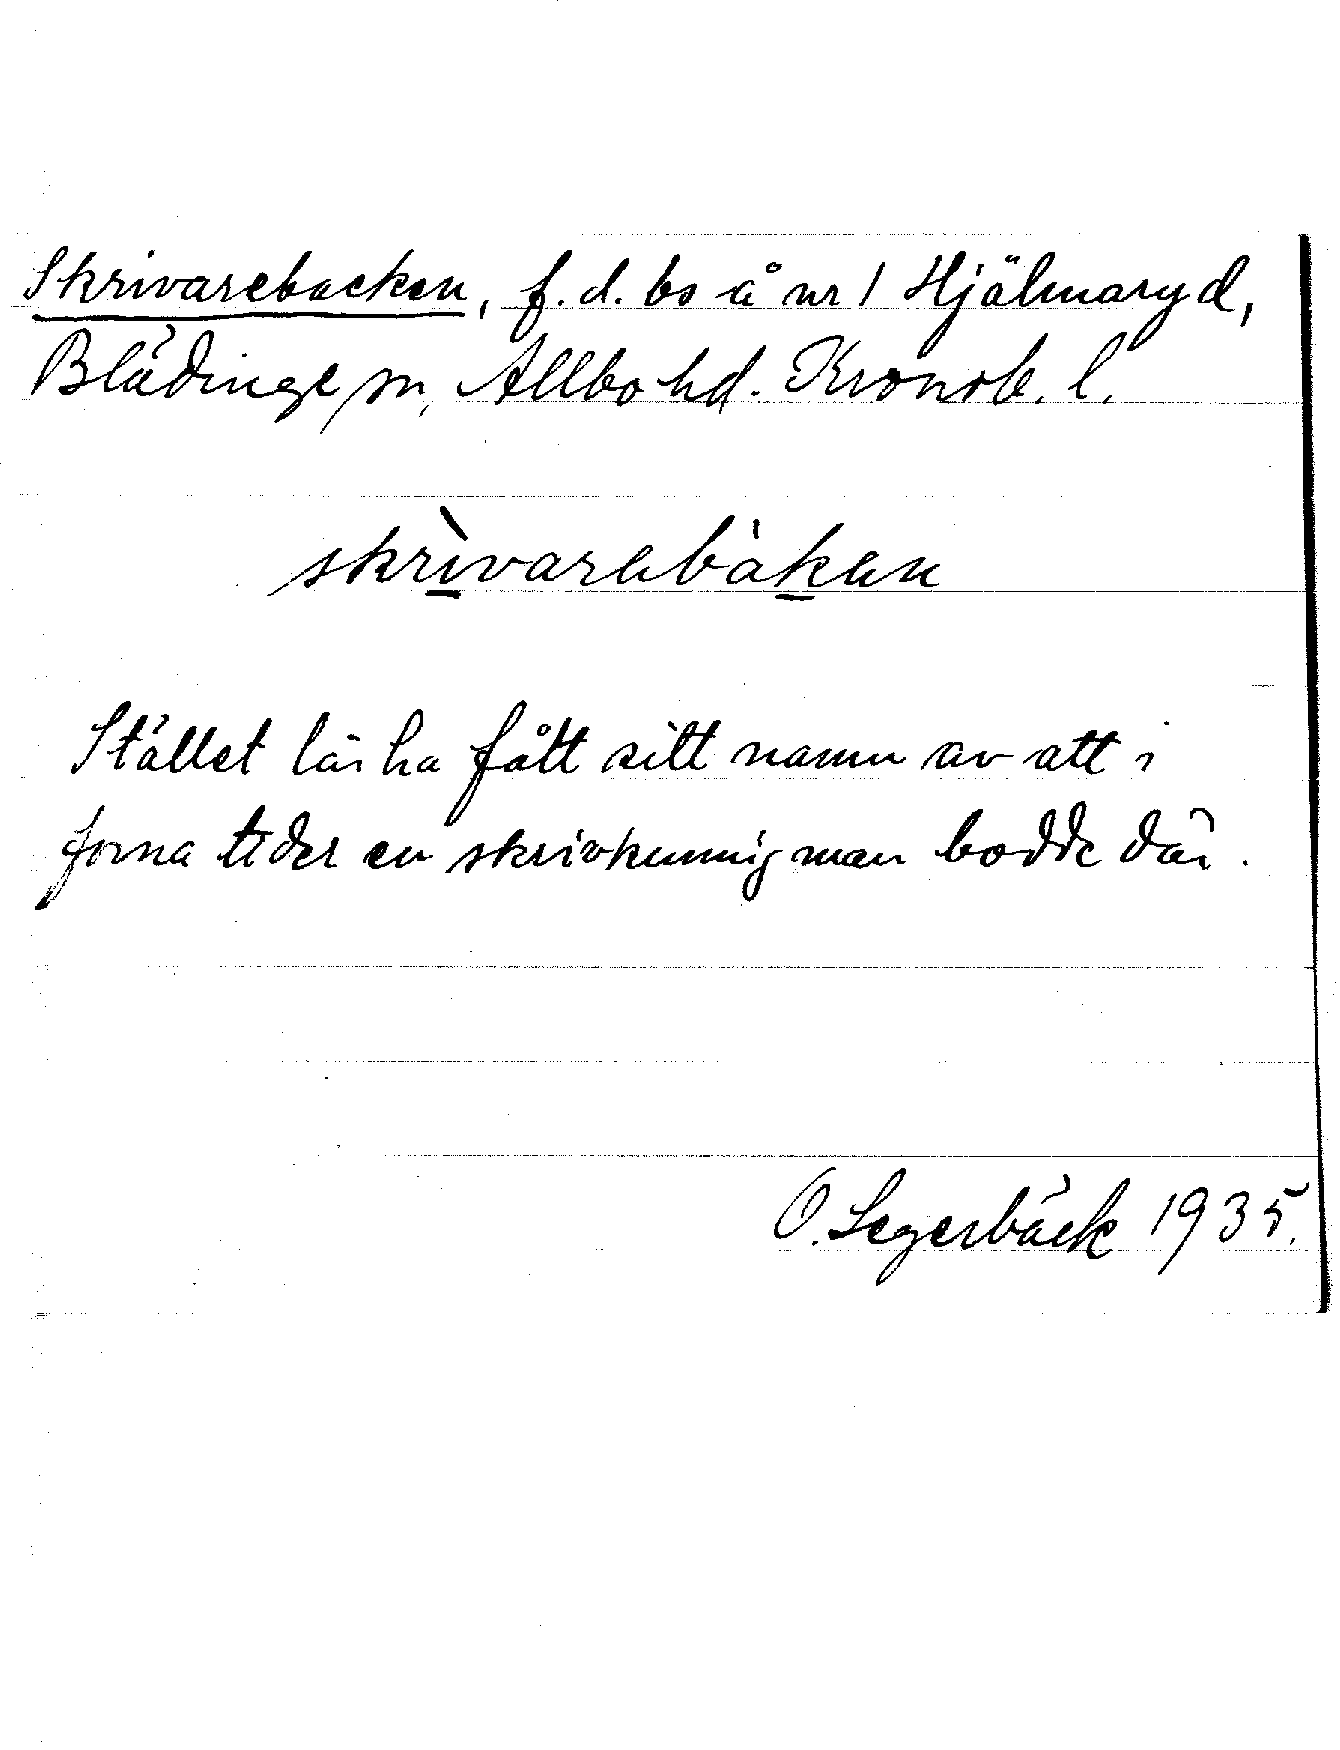 Skrivarebacken, f.d. bs å nr 1 Hjälmaryd,
Blädinge sn, Allbo hd. Kronob. l.
skrìvarebàken
Stället lär ha fått sitt namn av att i
forna tider en skrivkunnig man bodde där.
O. Segerbäck 1935.